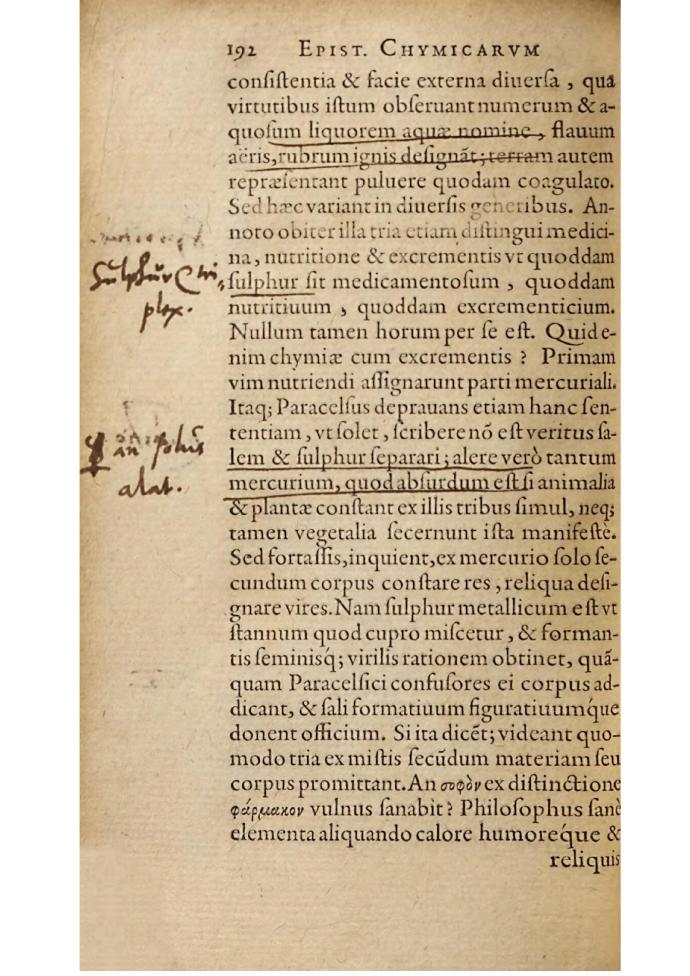 192 EPIST. CHYMICARVM
conſiſtentia & facie externa diuerſa, qua
virtutibus iſtum obſeruant numerum & a-
quoſum liquorem aquæ nomine, flauum
aëris, rubrum ignis deſignãt; terram autem
repræſentant puluere quodam coagulato.
Sed hæc variant in diuerſis generibus. An-
noto obiter illa tria etiam diſtingui medici-
na, nutritione & excrementis vt quoddam
Sulphur
ſulphur ſit medicamentoſum, quoddam
plex.
nutritiuum, quoddam excrementicium.
Nullum tamen horum per ſe eſt. Quid e-
nim chymiæ cum excrementis? Primam
vim nutriendi aſſignarunt parti mercuriali.
Itaq; Paracelſus deprauans etiam hanc ſen-
tentiam, vt ſolet, ſcribere nõ eſt veritus ſa-
☿ an
lem & ſulphur ſeparari; alere verò tantum
alat.
mercurium, quod abſurdum eſt ſi animalia
& plantæ conſtant ex illis tribus ſimul, neq;
tamen vegetalia ſecernunt iſta manifeſtè.
Sed fortaſſis, inquient, ex mercurio ſolo ſe-
cundum corpus conſtare res, reliqua deſi-
gnare vires. Nam ſulphur metallicum eſt vt
ſtannum quod cupro miſcetur, & forman-
tis ſeminisq́; virilis rationem obtinet, quã-
quam Paracelſici confuſores ei corpus ad-
dicant, & ſali formatiuum figuratiuumq́ue
donent officium. Si ita dicẽt; videant quo-
modo tria ex miſtis ſecũdum materiam ſeu
corpus promittant. An σοφὸν ex diſtinctione
φάρμακον vulnus ſanabit? Philoſophus ſanè
elementa aliquando calore humoreq́ue &
reliquis